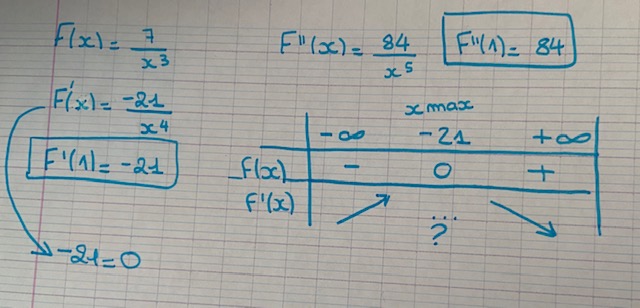 F(x) = 7/x³
F''(x) = 84/x⁵
F''(1) = 84
F'(x) = -21/x⁴
F'(1) = -21
x max
-∞ -21 +∞
F(x) - 0 + 
F'(x) ↗ ...? ↘
-21=0